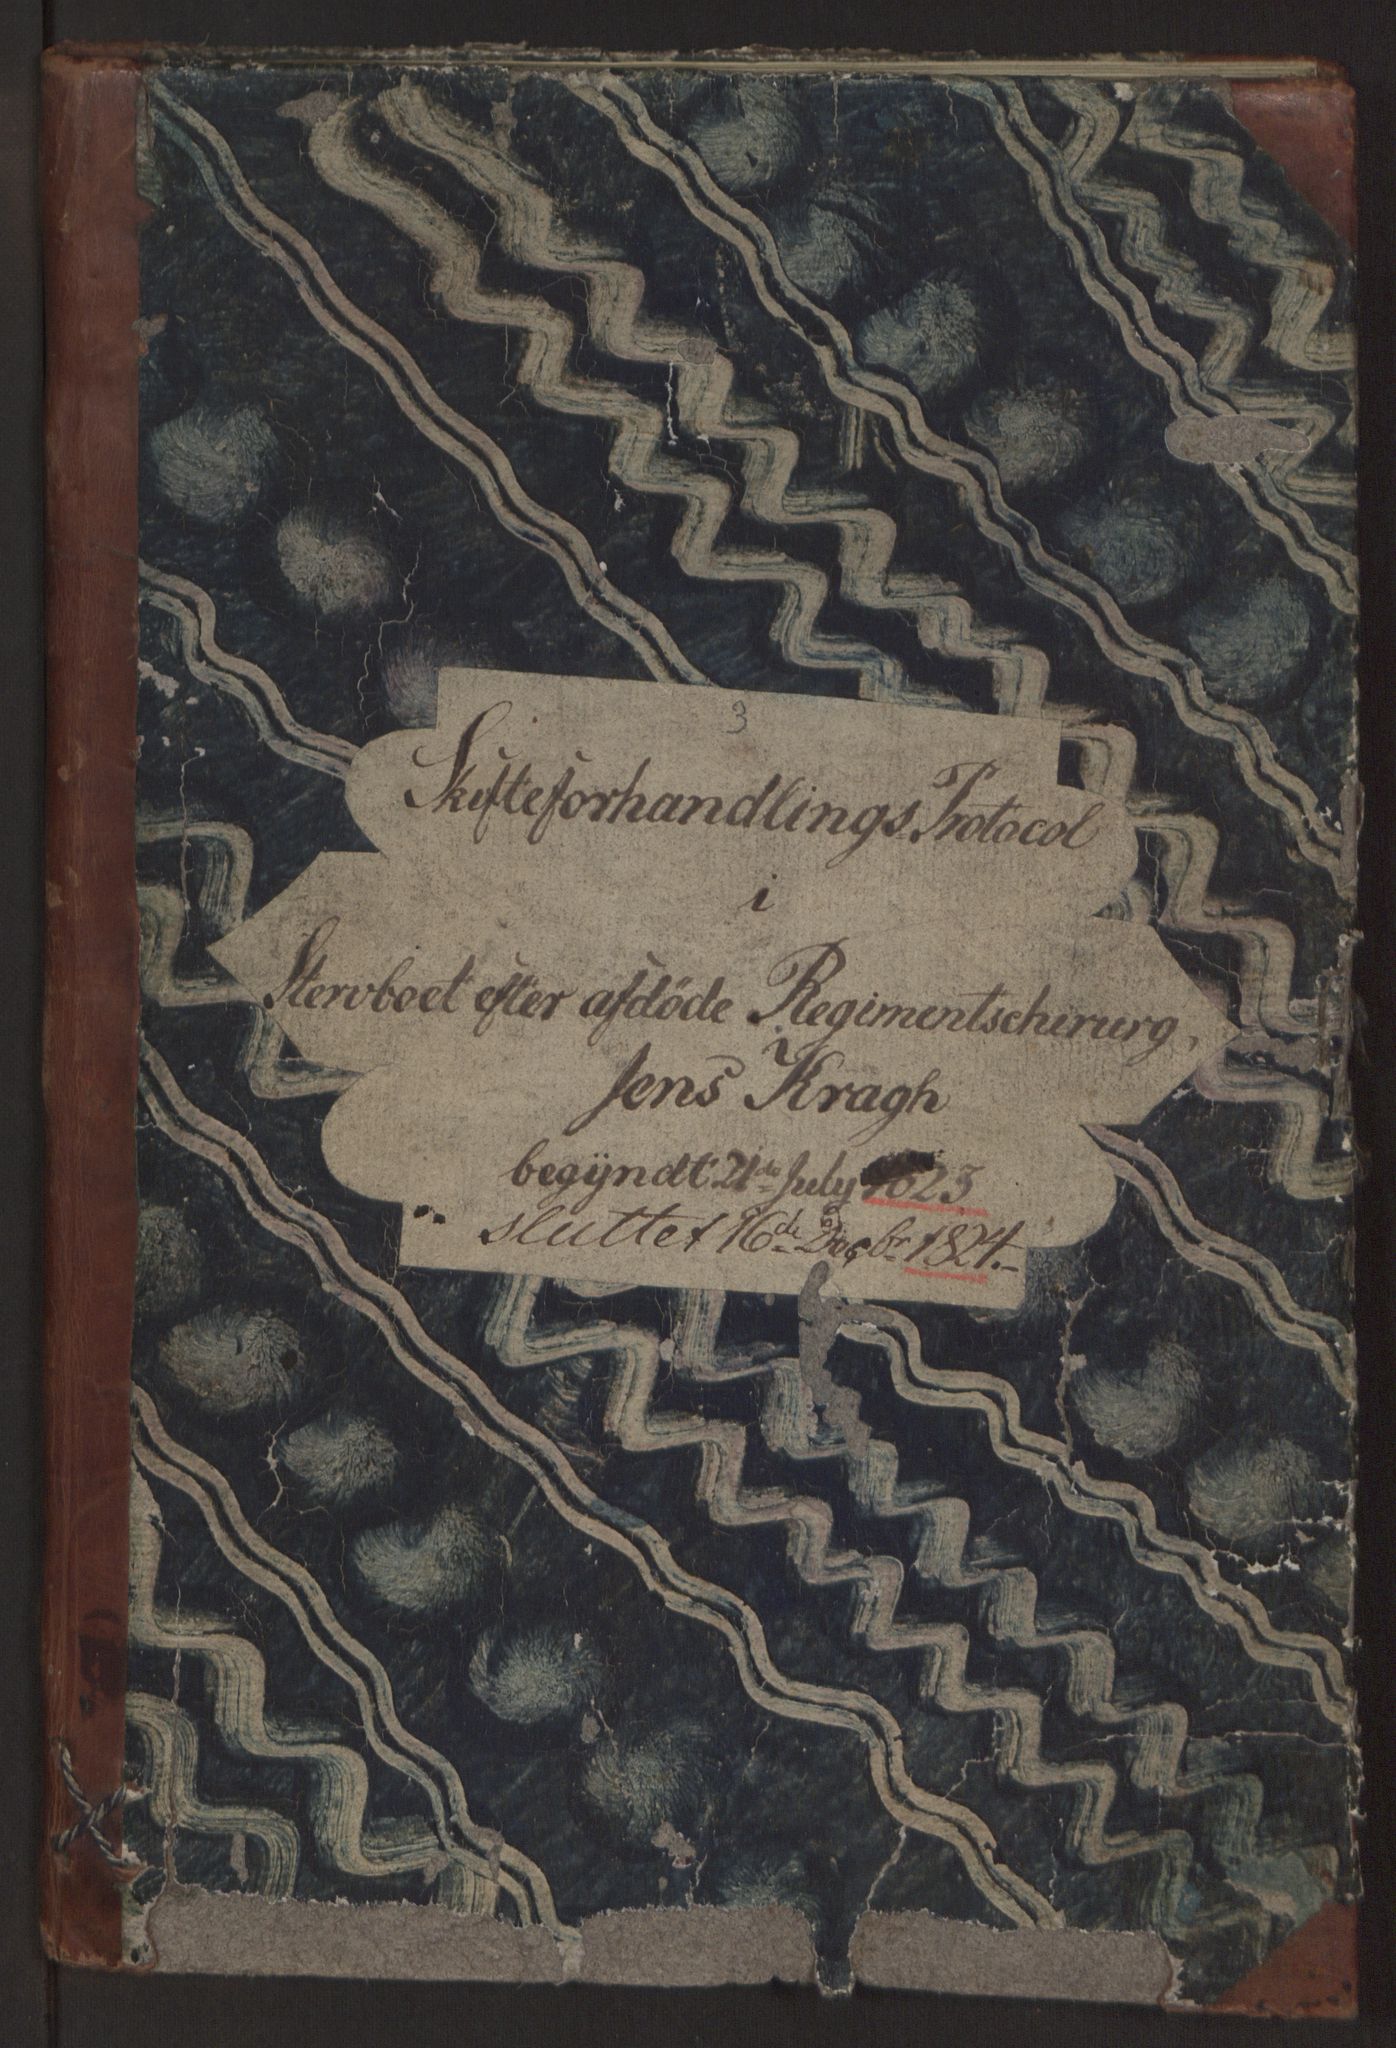 3
Skifteforhandlings Protocol
i
Stervboet efter afdöde Regimentschirurg,
Jens Kragh
begÿndt 21de July 1823
sluttet 16de Decbr 1824.